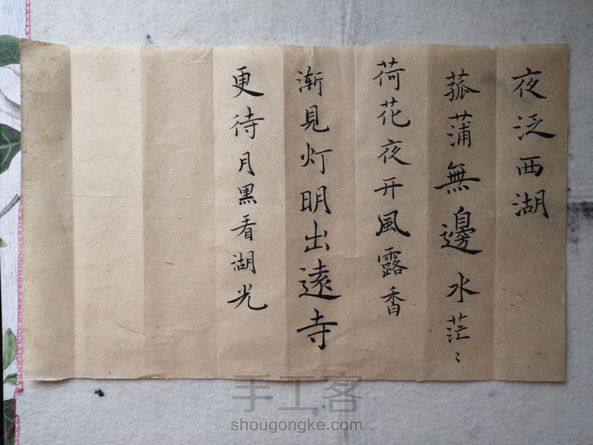 夜泛西湖
菰蒲無邊水茫〻
荷花夜开風露香
渐見灯明出遠寺
更待月黑看湖光
手工客
shougongke.com